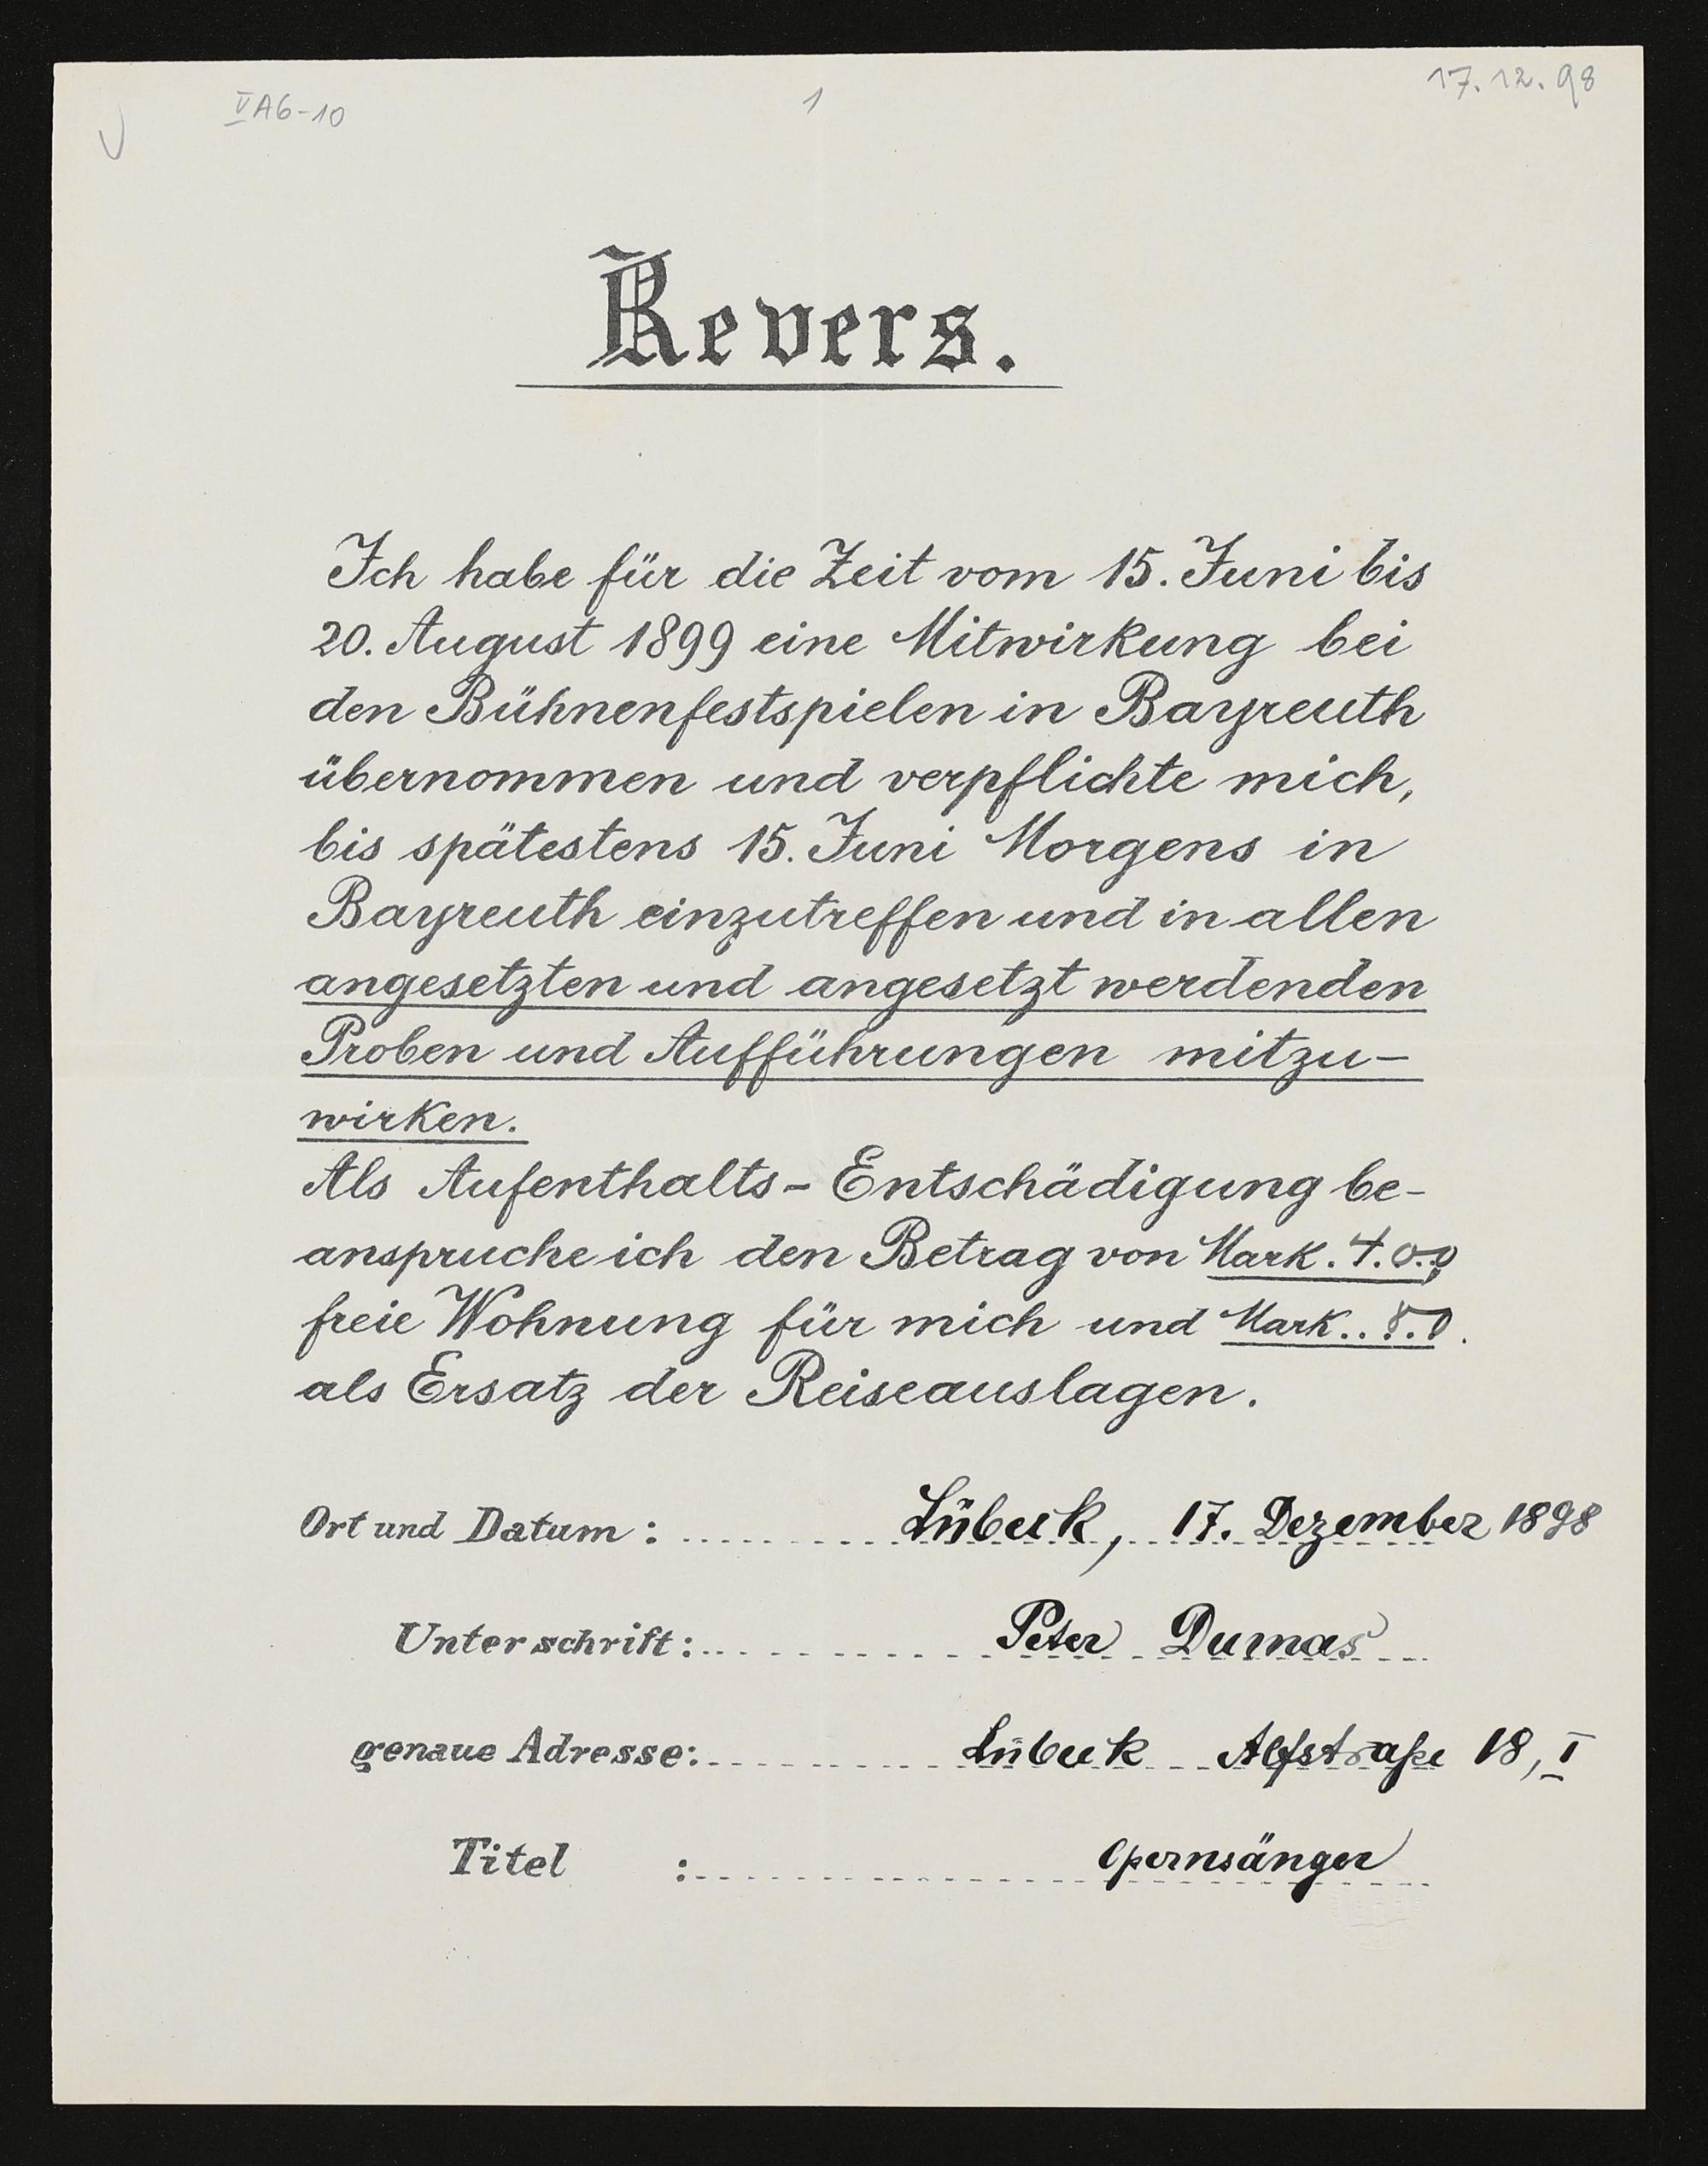 V A6-10
1
17.12.98
Revers.
Ich habe für die Zeit vom 15. Juni bis
20. August 1899 eine Mitwirkung bei
den Bühnenfestspielen in Bayreuth
übernommen und verpflichte mich,
bis spätestens 15. Juni Morgens in
Bayreuth einzutreffen und in allen
angesetzten und angesetzt werdenden
Proben und Aufführungen mitzu-
wirken.
Als Aufenthalts-Entschädigung be-
anspruche ich den Betrag von Mark. 400,
freie Wohnung für mich und Mark.. 80.
als Ersatz der Reiseauslagen.
Ort und Datum: Lübeck, 17. Dezember 1898
Unterschrift: Peter Dumas
genaue Adresse: Lübeck Alfstraße 18, I
Titel : Opernsänger